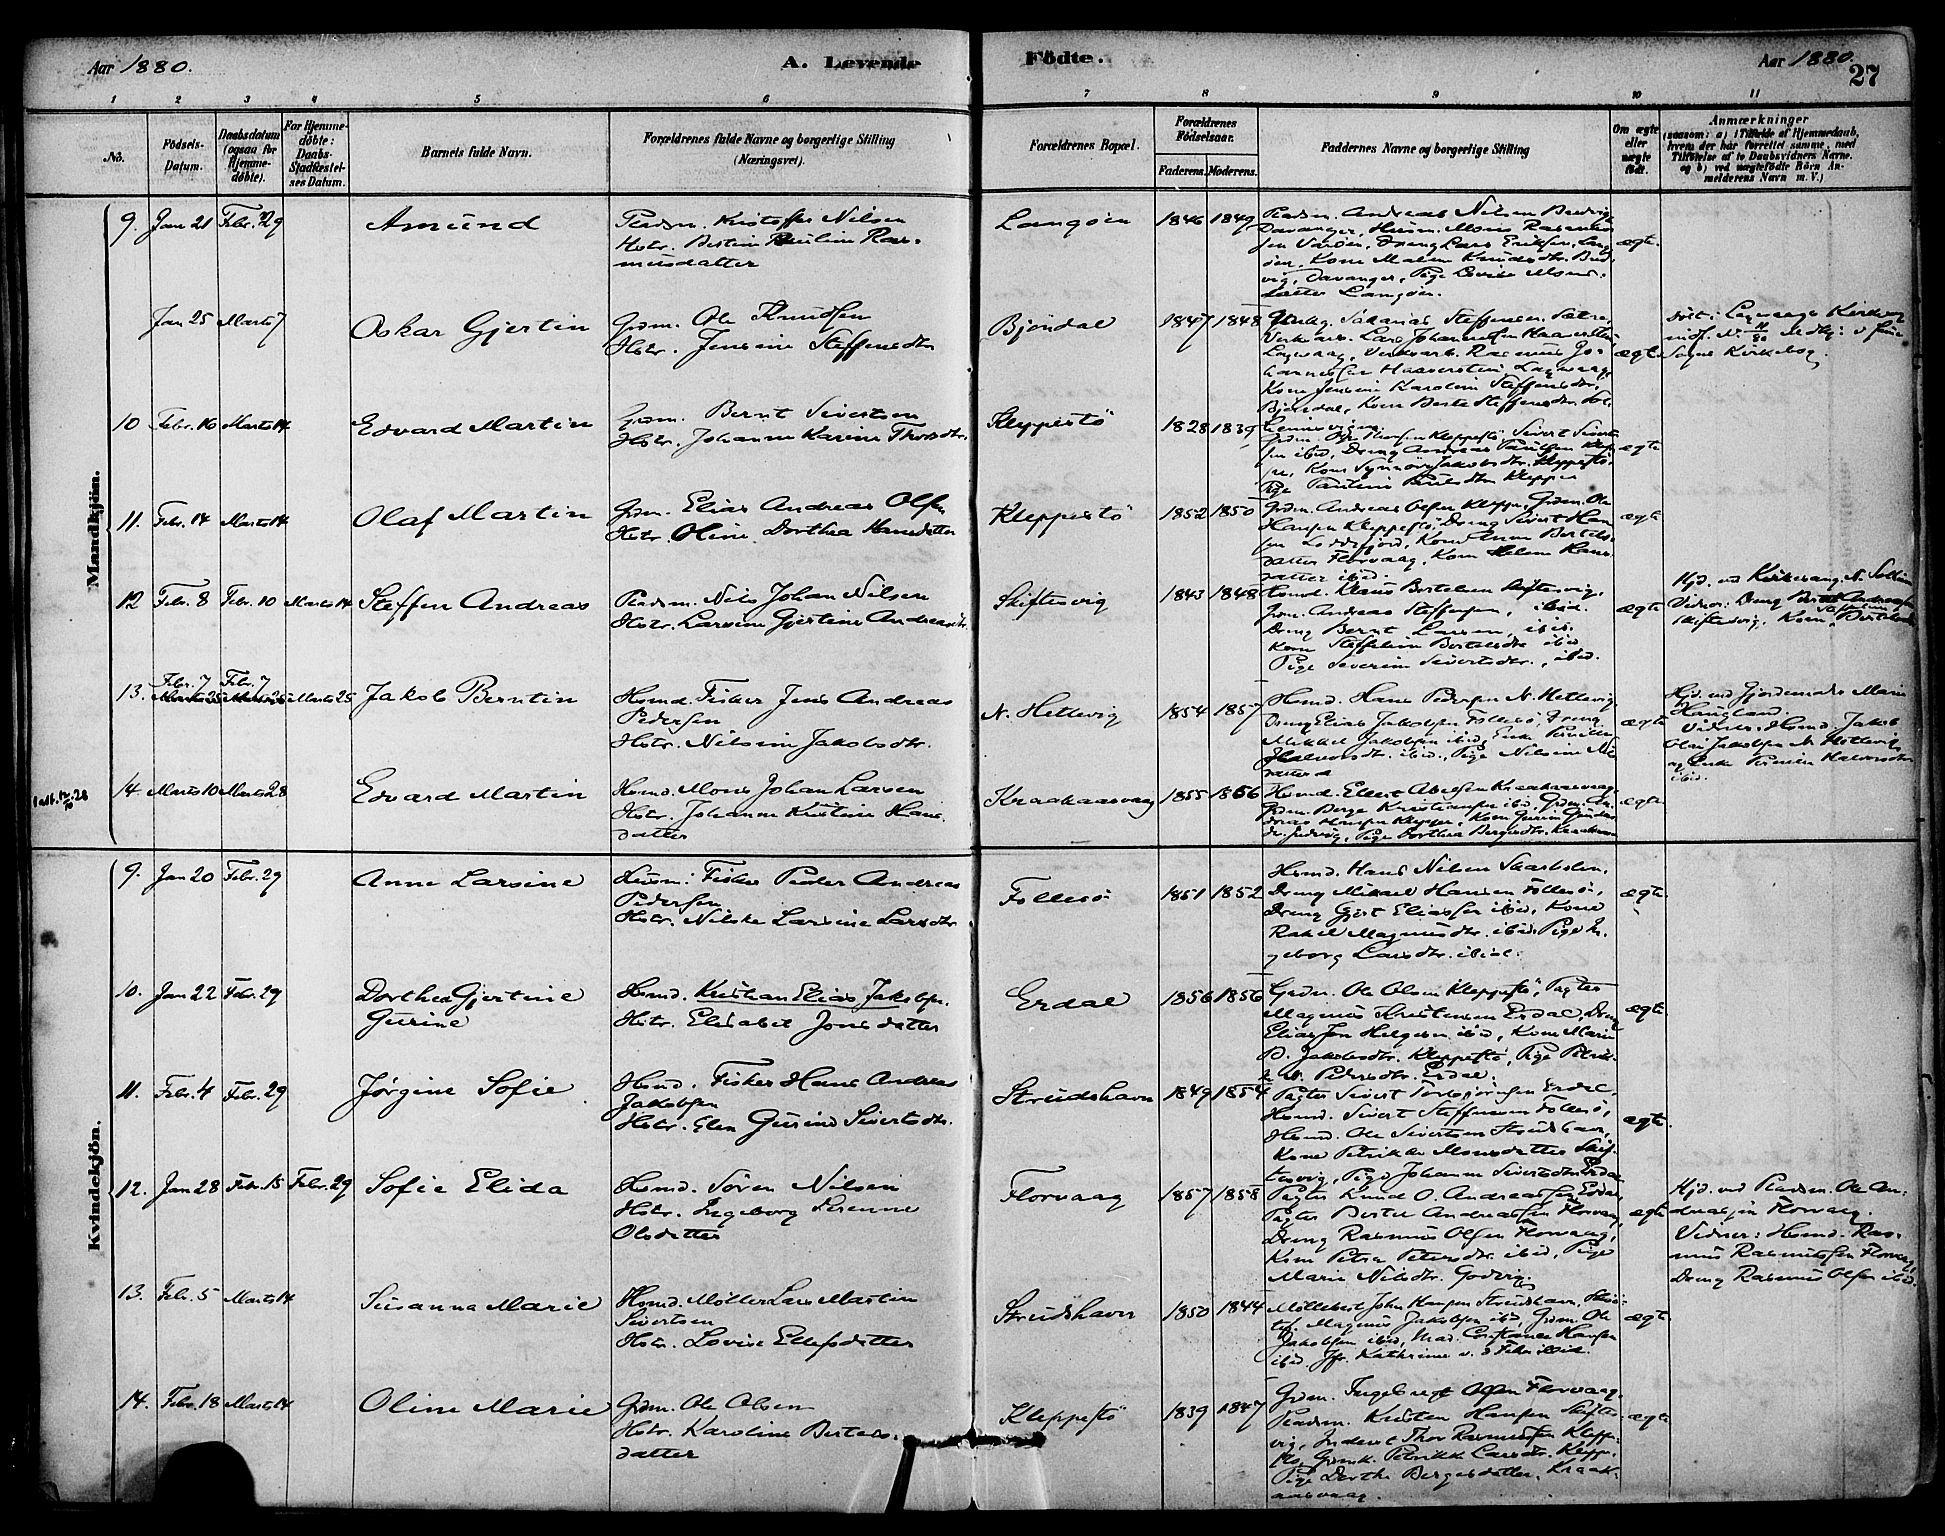 Aar 1880.
A. Levende
Födte.
Aar 1880.
27
1 2 3 4 5 6 7 8 9 10 11
No.
Födsels-
Datum.
Daabsdatum
(ogsaa for
Hjemme-
döbte).
For Hjemme-
döbte:
Daabs-
Stadfæstel-
ses Datum.
Barnets fulde Navn.
Forældrenes fulde Navne og borgerlige Stilling
(Næringsvei).
Forældrenes Bopæl.
Forældrenes
Födselsaar.
Faderens. Moderens.
Faddernes Navne og borgerlige Stilling
Om ægte
eller
uægte
födt.
Anmærkninger
(saasom: a) i Tilfælde af Hjemmedaab,
hvem der har forrettet samme, med
Tilföielse af to Daabsvidners Navne,
og b) ved uægtefödte Börn An-
melderens Navn m. V.)
Mandkjön.
9. Jan 21 Febr. 29
Amund
Pladsm. Kristoffer Nilsen
Hstr. Bertine Pauline Ras-
musdatter
Langøen
1846 1849
Pladsm. Andreas Nilsen Budvig
Davanger, Husm. Mons Rasmus-
sen Varöen, Dreng Lars Eriksen, Lang-
øen, Kone Malene Knudsdtr. Bud-
vig, Davanger, Pige Lovise Mons-
datter Langøen.
ægte.
Jan 25 Marts 7
Oskar Gjertin
Grdm. Ole Knudsen
Hstr. Jensine Steffensdtr
Bjöndal
1847 1848
Steffensen
Lars Johannessen
Laxevaag, Rasmus Jo-
hannessen Laxevaag,
Kone Jensine Karoline Steffensdtr.
Bjöndal, Kone Berte Steffensdtr.
ægte
döbt i Laxevaags Kirke
Kirkebog.
10 Febr. 16 Marts 14
Edvard Martin
Grdm. Bernt Sivertsen
Hstr. Johanne Karine Thorsdtr.
Kleppestö
1828 1839
Kleppestö Sivert Sivert-
sen ibid, Dreng Andreas Paulsen Klep-
pe, Kone Synnöve Jakobsdtr. Kleppestö,
Pige Pauline Paulsdtr Kleppe
ægte
11. Febr. 14 Marts 14
Olaf Martin
Grdm. Elias Andreas Olsen
Hstr. Oline Dorthea Hansdatter
Kleppestö
1852 1850
Grdm. Andreas Olsen Kleppe, Grdm. Ole
Hansen Kleppestö, Dreng Sivert Han-
sen Loddefjord, Kone Anne Bertels-
datter Florvaag, Kone Helene Hans-
datter ibid.
ægte
12 Febr. 8 Febr. 10 Marts 14
Steffen Andreas
Pladsm. Nils Johan Nilsen
Hstr. Larsine Gjertine Andreasdtr.
Skiftesvig
1843 1848
Husmd. Klaus Bertelsen Skiftesvig,
Grdm. Andreas Steffensen, ibid.
Dreng Bernt Larsen, ibid.
Kone Steffeline Bertelsdtr ibid
Pige Severine Sivertsdtr., ibid.
ægte
Hjd. ved Kirkesang. N.
Vidner: Dreng Andreassen
Skiftesvig, Kone Steffeline Bertelsdtr
13. Febr. 7 Febr. 7
Marts 25 Marts 25 Marts 25
Jakob Berntin
Husmd. Fisker Jens Andreas
Pedersen
Hstr. Nilsine Jakobsdtr.
N. Hetlevig
1854 1857
Husmd. Hans Pedersen N. Hetlevig
Dreng Elias Jakobsen Follesö, Dreng
Mikkel Jakobsen ibid, Enke Pernille
Halvorsdtr. ibid., Pige Nilsine Nils-
datter
ægte
Hjd. ved Gjordemoder Marie
Haugland.
Vidner: Husmd. Jakob
Olai Jakobsen N. Hetlevig
og Enke Pernille Halvorsdtr
ibid.
14. Marts 10 Marts 28
Edvard Martin
Husmd. Mons Johan Larsen
Hstr. Johanne Kristine Hans-
datter
Kraakaasvaag
1855 1856
Husmd. Ellert Kraakaasvaag
Grdm. Berge Kristiansen ibid, Grdm. An-
dreas Hansen Kleppe, Kone Gurine
Pige Dorthea Bergesdtr. Kraakaas
ægte
Kvindekjön.
9. Jan 20 Febr. 29
Anne Larsine
Husm. Fisker Peder Andreas
Pedersen
Hstr. Nilske Larsine Larsdtr
Follesö
1851 1852
Husmd. Hans Nilsen Skarholm.
Dreng Mikael Hansen Follesö,
Dreng Gjert Eliassen ibid, Kone
Rakel Magnusdtr. ibid. Pige In-
geborg Larsdtr. ibid.
ægte
10. Jan 22 Febr. 29
Dorthea Gjertine
Gurine
Husmd. Kristian Elias Jakobsen.
Hstr. Elisabet Jonsdatter
Erdal
1856 1856
Grdm. Ole Olsen Kleppestö, Pagter
Magnus Kristensen Erdal, Dreng
Elias Jon Helgesen ibid, Kone Marie
B. Jakobsdtr. Kleppestö, Pige Petrik-
ke N. Pedersdtr. Erdal.
ægte
11. Febr. 4 Febr. 29
Jørgine Sofie
Husmd. Fisker Hans Andreas
Jakobsen
Hstr. Elen Gurine Sivertsdtr.
Strudshavn
1849 1854
Pagter Sivert Torbjörnsen Erdal,
Husmd. Sivert Steffensen Follesö,
Husmd. Ole Sivertsen Strudshavn,
Kone Petrikke Monsdatter Skif-
tesvig, Pige Johanne Sivertsdtr Erdal
ægte.
12. Jan 28 Febr. 15 Febr. 29
Sofie Elida
Husmd. Sören Nilsen
Hstr. Ingeborg Serenne
Olsdatter
Florvaag
1857 1858
Pagter Knud O. Andreassen Erdal,
Pagter Bertel Andreassen Florvaag,
Dreng Rasmus Olsen Florvaag,
Kone Petra Petersdtr ibid, Pige
Marie Nilsdtr. Godvig.
ægte
Hjd. ved Pladsm. Ole An-
dreassen Florvaag.
Vidner: Husmd. Ras-
mus Rasmussen Florvaag,
Dreng Rasmus Olsen ibid.
13. Febr. 5 Marts 14
Susanna Marie
Husmd. Møller Lars Martin
Sivertsen
Hstr. Lovise Ellefsdatter
Strudshavn
1850 1844
Møllebest. John Hansen Strudshavn,
Magnus Jakobsen ibid, Grdm. Ole
Jakobsen ibid, Mad. Constance Hansen
ibid. Jfr. Kathrine ibid.
ægte.
14. Febr. 18 Marts 14
Oline Marie
Grdm. Ole Olsen
Hstr. Karoline Bertels-
datter
Kleppestö
1839 1847
Grdm. Ingebrigt Olsen Florvaag.
Pladsm. Kristen Hansen Skiftes-
vig, Inderst Thor Rasmussen Kleppe-
stö, Petrikke Larsdtr. Kleppe.
Pige Dorthe Bergesdatter, Kraak-
aasvaag.
ægte